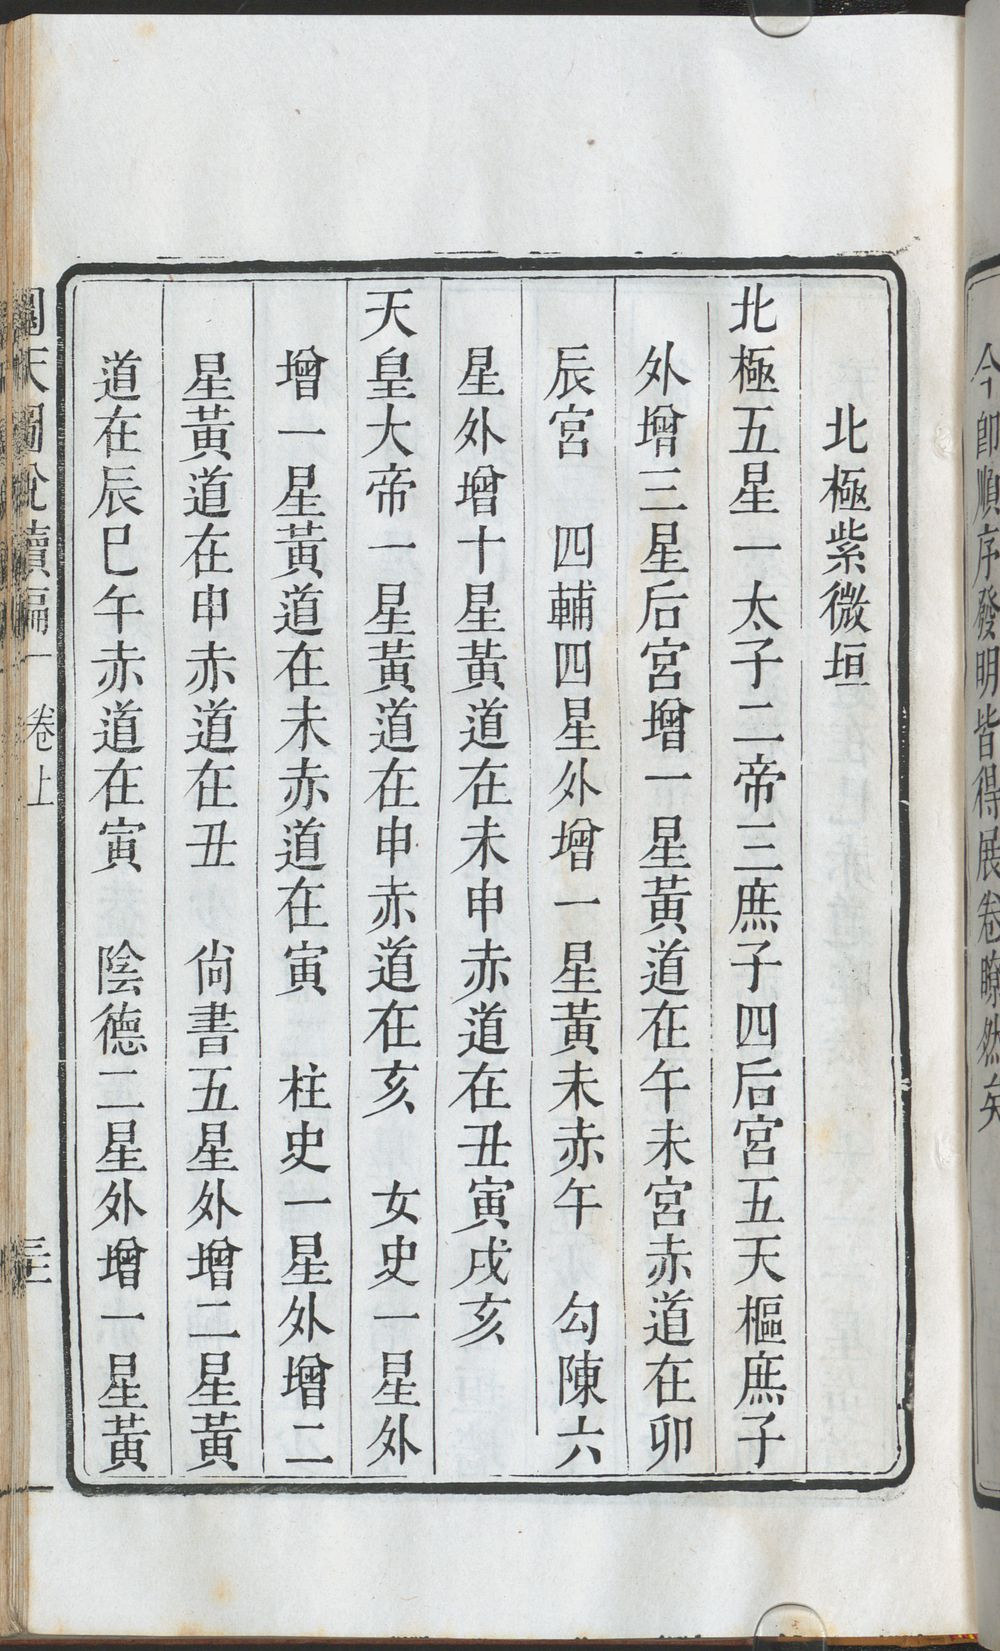 今卽順序發明皆得展卷瞭然矣
北極紫微垣
北極五星一太子二帝三庶子四后宮五天樞庶子
外增三星后宮增一星黃道在午未宮赤道在卯
辰宮　四輔四星外增一星黃未赤午　勾陳六
星外增十星黃道在未申赤道在丑寅戌亥
天皇大帝一星黃道在申赤道在亥　女史一星外
增一星黃道在未赤道在寅　柱史一星外增二
星黃道在申赤道在丑　尙書五星外增二星黃
道在辰巳午赤道在寅　陰德二星外增一星黃
天圖說續編　卷上　三